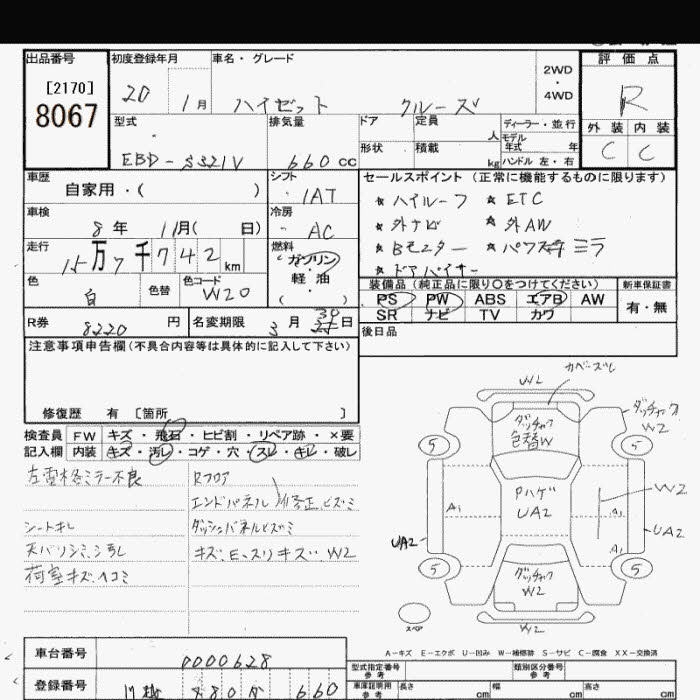 出品番号 初度登録年月 車名・グレード 評価点
[2170] 2WD
8067 20 1月 ハイゼット クルーズ ・ R
4WD
型式 排気量 ドア 定員 人 ディーラー・並行 外装 内装
EBD-S321V 660 cc 形状 積載 kg モデル年式 年 C C
ハンドル 左・右
車歴 自家用・( ) シフト IAT セールスポイント (正常に機能するものに限ります)
★ ハイルーフ ★ ETC
車検 8年 11月( 日) 冷房 AC ★ 外ナビ ★ 外AW
走行 15万7千742km 燃料 ガソリン・軽油 ( ) ★ Bモニター ★ パワスライドミラ
★ ドアバイザー
色 白 色替 色コード W20 装備品 (純正品に限り○をつけてください) 新車保証書
PS PW ABS エアB AW 有・無
R券 8220円 名変期限 3月30日 SR ナビ TV カワ
注意事項申告欄 (不具合内容等は具体的に記入して下さい) 後日品
修復歴 有 [箇所 ]
検査員 FW キズ・飛石・ヒビ割・リペア跡・×要
記入欄 内装 キズ・汚レ・コゲ・穴・スレ・キレ・破レ
左電格ミラー不良 Rフロア
エンドパネル 修正ヒズミ
シートキレ ダッシュパネルヒズミ
天バリシミ、汚レ キズ、E、スリキズ W2
荷室キズ、ヘコミ
W2
W2
色替W
5 5
PハゲUA2
A1 A1 W2
UA2 UA2
A1
5 5
W2
スペア W2
A-キズ E-エクボ U-凹み W-補修跡 S-サビ C-腐食 XX-交換済
車台番号 0000628 型式指定番号 参考 類別区分番号 参考
登録番号 川越 480 660 車庫証明用 参考 長さ cm 幅 cm 高さ cm